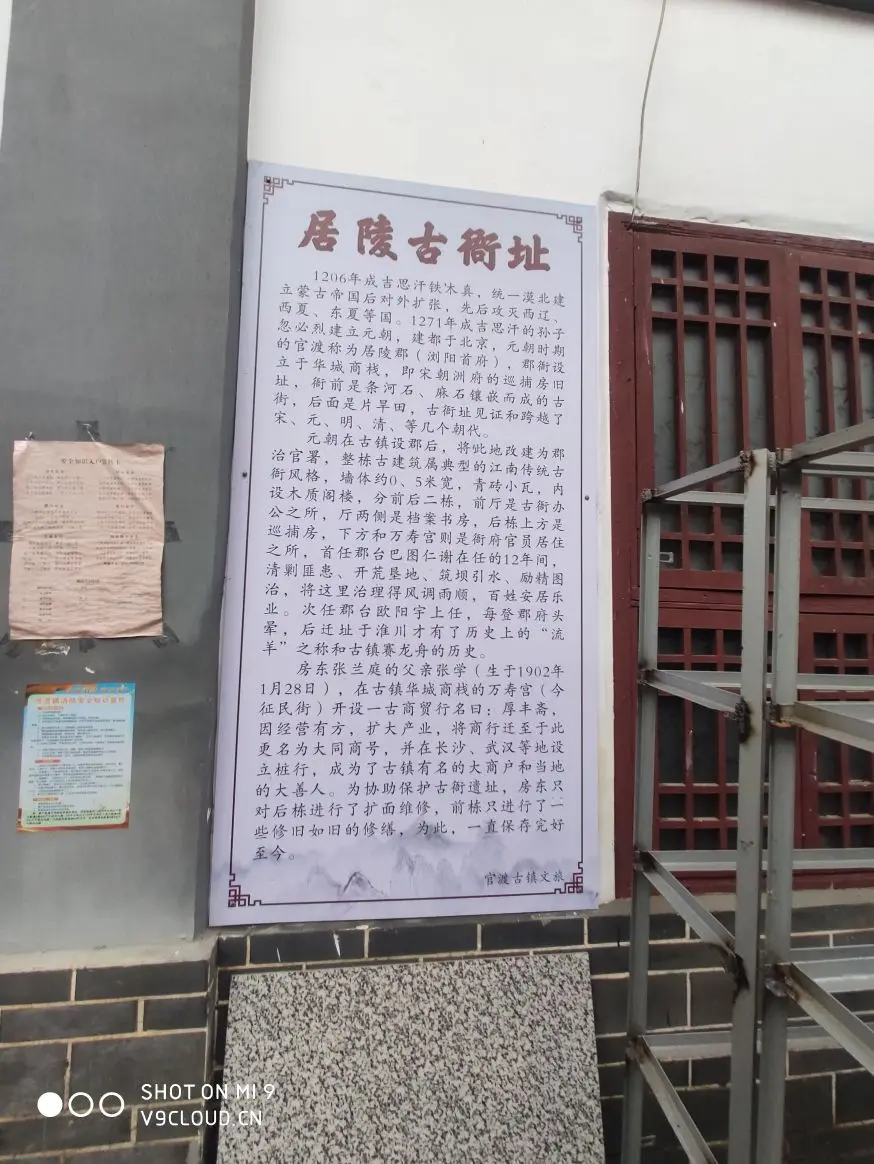 居陵古衙址
1206年成吉思汗铁木真，统一漠北建
立蒙古帝国后对外扩张，先后攻灭西辽、
西夏、东夏等国。1271年成吉思汗的孙子
忽必烈建立元朝，建都于北京，元朝时期
的官渡称为居陵郡（浏阳首府），郡衙设
立于华城商栈，即宋朝洲府的巡捕房旧
址，衙前是条河石、麻石镶嵌而成的古
街，后面是片旱田，古衙址见证和跨越了
宋、元、明、清、等几个朝代。
元朝在古镇设郡后，将此地改建为郡
治官署，整栋古建筑属典型的江南传统古
衙风格，墙体约0、5米宽，青砖小瓦，内
设木质阁楼，分前后二栋，前厅是古衙办
公之所，厅两侧是档案书房，后栋上方是
巡捕房，下方和万寿宫则是衙府官员居住
之所，首任郡台巴图仁谢在任的12年间，
清剿匪患、开荒垦地、筑坝引水、励精图
治，将这里治理得风调雨顺，百姓安居乐
业。次任郡台欧阳宇上任，每登郡府头
晕，后迁址于淮川才有了历史上的“流
羊”之称和古镇赛龙舟的历史。
房东张兰庭的父亲张学（生于1902年
1月28日），在古镇华城商栈的万寿宫（今
征民街）开设一古商贸行名曰：厚丰斋，
因经营有方，扩大产业，将商行迁至于此
更名为大同商号，并在长沙、武汉等地设
立桩行，成为了古镇有名的大商户和当地
的大善人。为协助保护古衙遗址，房东只
对后栋进行了扩面维修，前栋只进行了一
些修旧如旧的修缮，为此，一直保存完好
至今。
官渡古镇文旅
SHOT ON MI 9
V9CLOUD.CN